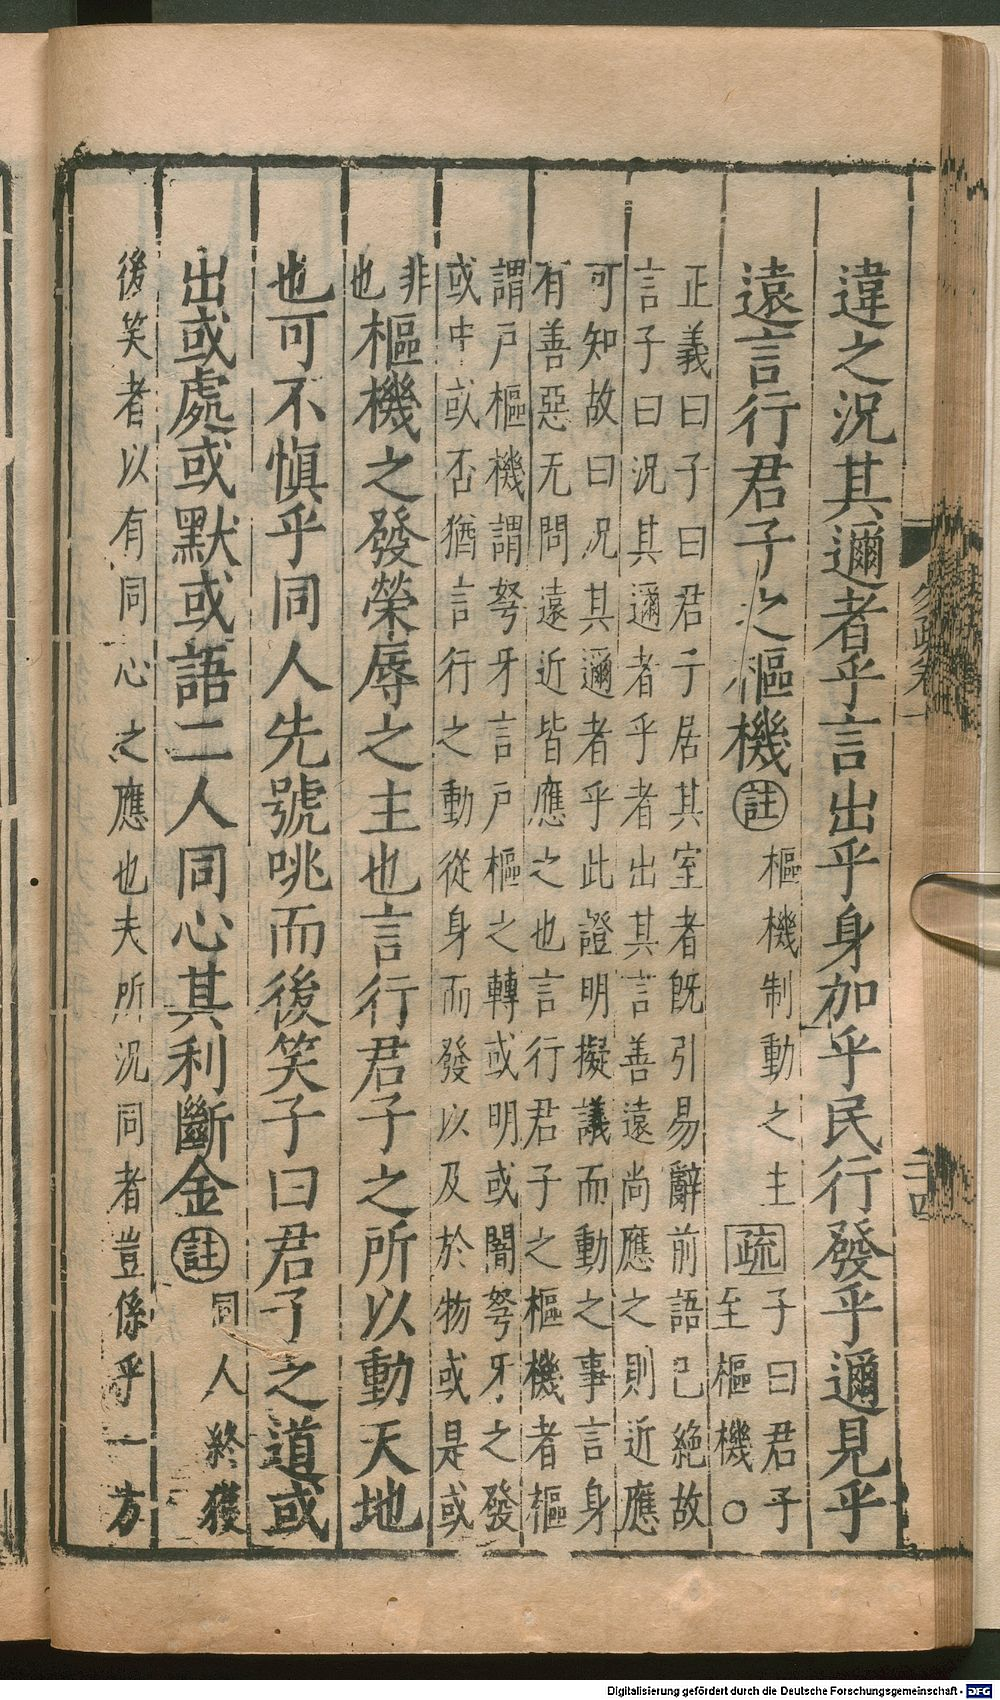 違之況其邇者乎言出乎身加乎民行發乎邇見乎
遠言行君子之樞機註樞機制動之主疏子曰君子
至樞機○
正義曰子曰君子居其室者旣引易辭前語已絶故
言子曰況其邇者乎者出其言善遠尚應之則近應
可知故曰況其邇者乎此證明擬議而動之事言身
有善惡无問遠近皆應之也言行君子之樞機者樞
謂戸樞機謂弩牙言戸樞之轉或明或闇弩牙之發
或中或否猶言行之動從身而發以及於物或是或
非
也樞機之發榮辱之主也言行君子之所以動天地
也可不愼乎同人先號咷而後笑子曰君子之道或
出或處或默或語二人同心其利斷金註同人終獲
後笑者以有同心之應也夫所況同者豈係乎一方
易疏卷一
二四
Digitalisierung gefördert durch die Deutsche Forschungsgemeinschaft - DFG